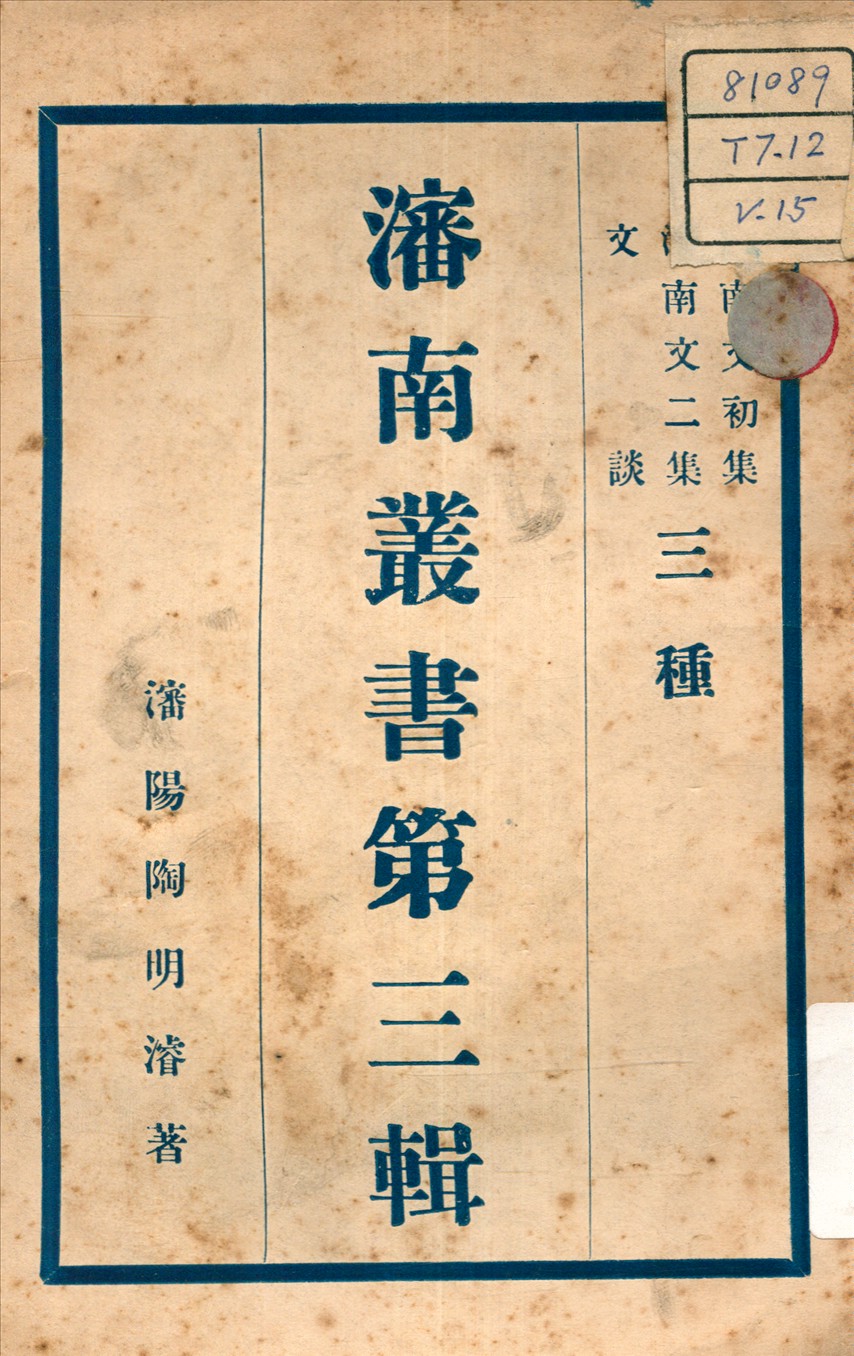 81089
T7.12
V.15
南文初集
南文二集
文談
三種
瀋南叢書第三輯
瀋陽陶明濬著